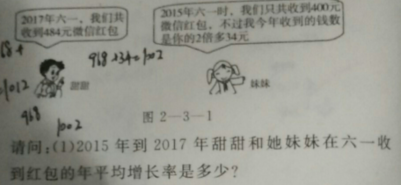 2017年六一，我们共
收到484元
微信红包
2015年六一时，我们只共收到400元
微信红包，不过我今年收到的钱数
是你的2倍多34元
968+34=1002
甜甜
妹妹
968
1002
图2-3-1
请问：(1)2015年到2017年甜甜和她妹妹在六一收
到红包的年平均增长率是多少？